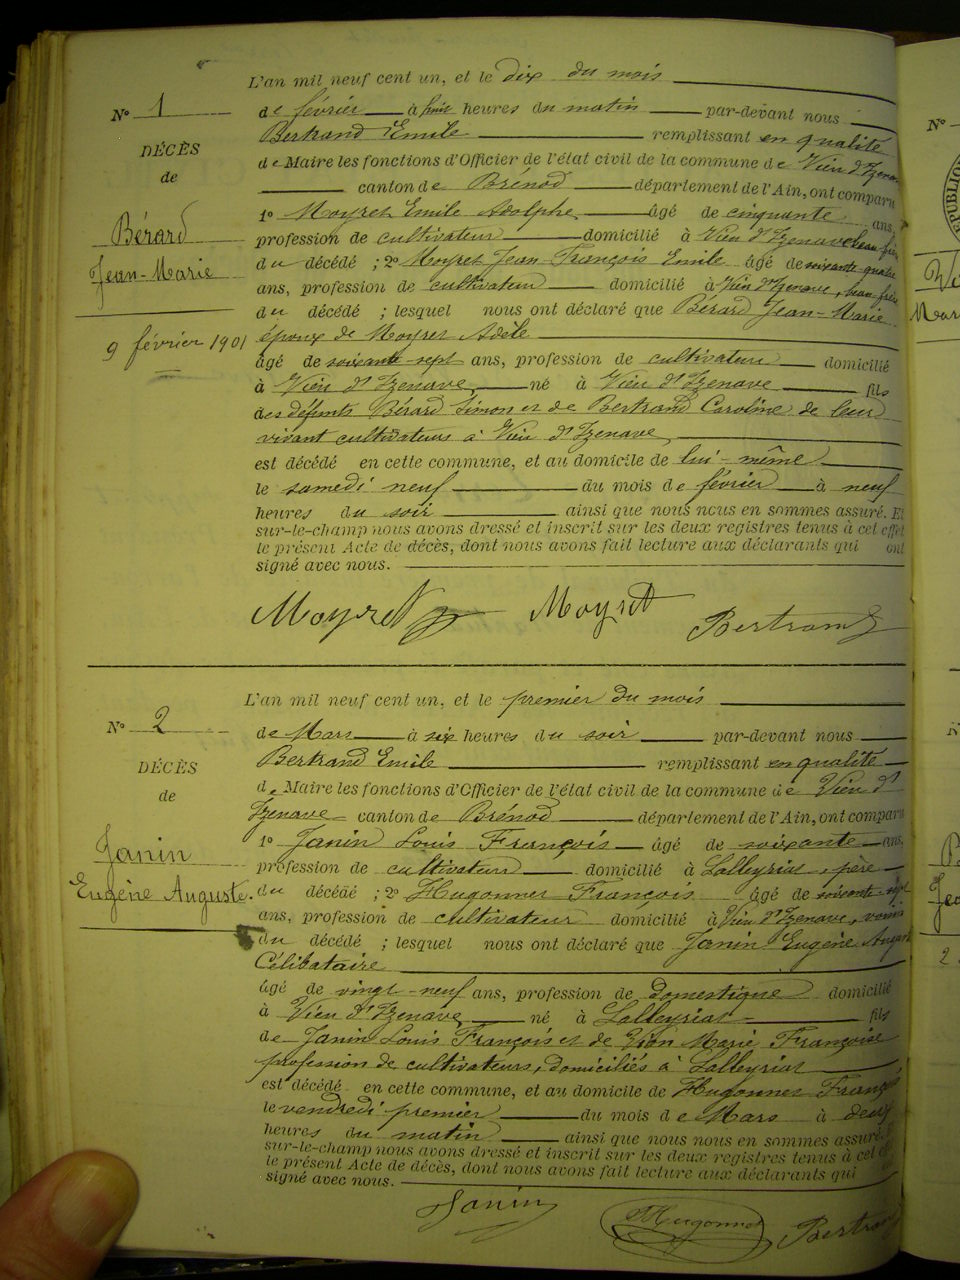 L'an mil neuf cent un, et le dix du mois
N° 1
de février à huit heures du matin par-devant nous
Bertrand Emile remplissant en qualité
DÉCÈS
de Maire les fonctions d'Officier de l'état civil de la commune de Vieu d'Izenave
de
canton de Brénod département de l'Ain, ont comparu
1° Moyret Emile Adolphe âgé de cinquante ans,
Bérard
profession de cultivateur domicilié à Vieu d'Izenave beau-frère
Jean-Marie
du décédé ; 2° Moyret Jean François Emile âgé de soixante quatre
ans, profession de cultivateur domicilié à Vieu d'Izenave, beau-frère
du décédé ; lesquel nous ont déclaré que Bérard Jean-Marie
9 février 1901
époux de Moyret Adèle
âgé de soixante sept ans, profession de cultivateur domicilié
à Vieu d'Izenave né à Vieu d'Izenave fils
des défunts Bérard Simon et de Bertrand Caroline de leur
vivant cultivateurs à Vieu d'Izenave
est décédé en cette commune, et au domicile de lui-même
le samedi neuf du mois de février à neuf
heures du soir ainsi que nous nous en sommes assuré. Et
sur-le-champ nous avons dressé et inscrit sur les deux registres tenus à cet effet
le présent Acte de décès, dont nous avons fait lecture aux déclarants qui ont
signé avec nous.
Moyret Moyret Bertrand
L'an mil neuf cent un, et le premier du mois
N° 2
de Mars à six heures du soir par-devant nous
Bertrand Emile remplissant en qualité
DÉCÈS
de Maire les fonctions d'Officier de l'état civil de la commune de Vieu d'
de
Izenave canton de Brénod département de l'Ain, ont comparu
1° Janin Louis François âgé de soixante ans,
Janin
profession de cultivateur domicilié à Lalleyriat, père
Eugène Auguste.
du décédé ; 2° Hugonnet François âgé de soixante-sept
ans, profession de cultivateur domicilié à Vieu d'Izenave, voisin
du décédé ; lesquel nous ont déclaré que Janin Eugène Auguste
Célibataire
âgé de vingt-neuf ans, profession de domestique domicilié
à Vieu d'Izenave né à Lalleyriat fils
de Janin Louis François et de Marie Françoise
profession de cultivateurs, domiciliés à Lalleyriat
est décédé en cette commune, et au domicile de Hugonnet François
le vendredi premier du mois de Mars à deux
heures du matin ainsi que nous nous en sommes assuré. Et
sur-le-champ nous avons dressé et inscrit sur les deux registres tenus à cet
le présent Acte de décès, dont nous avons fait lecture aux déclarants qui
signé avec nous.
Janin Hugonnet Bertrand